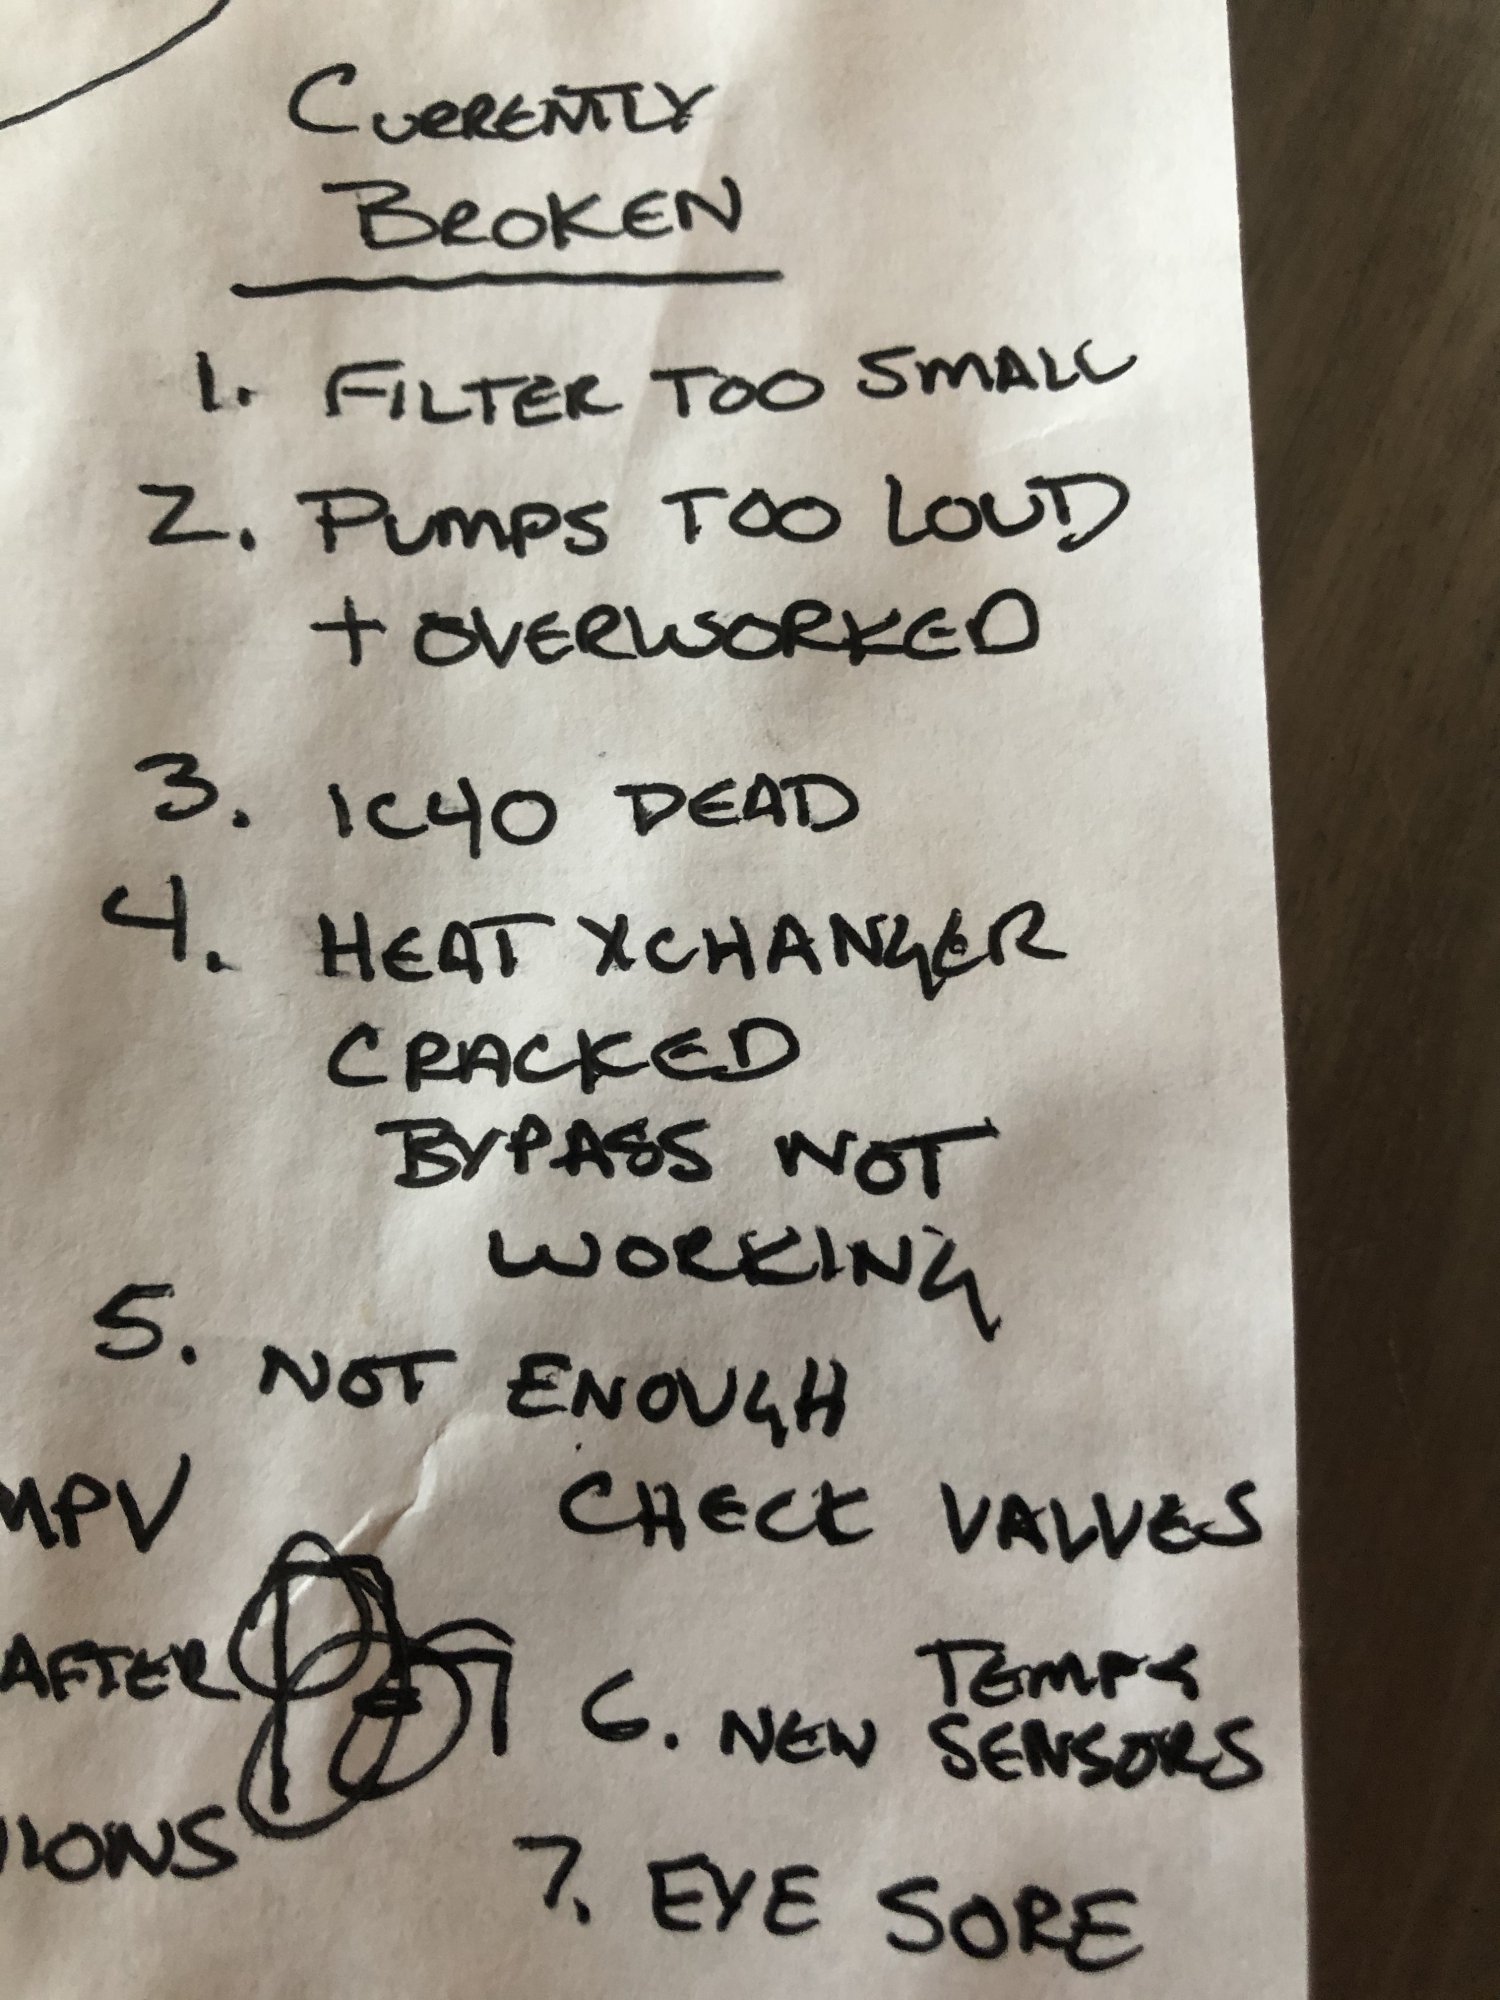 CURRENTLY
BROKEN
1. FILTER TOO SMALL
2. PUMPS TOO LOUD
+ OVERWORKED
3. IC40 DEAD
4. HEAT XCHANGER
CRACKED
BYPASS NOT
WORKING
5. NOT ENOUGH
CHECK VALVES
MPV
AFTER
6. NEW TEMP
SENSORS
IONS
7. EYE SORE